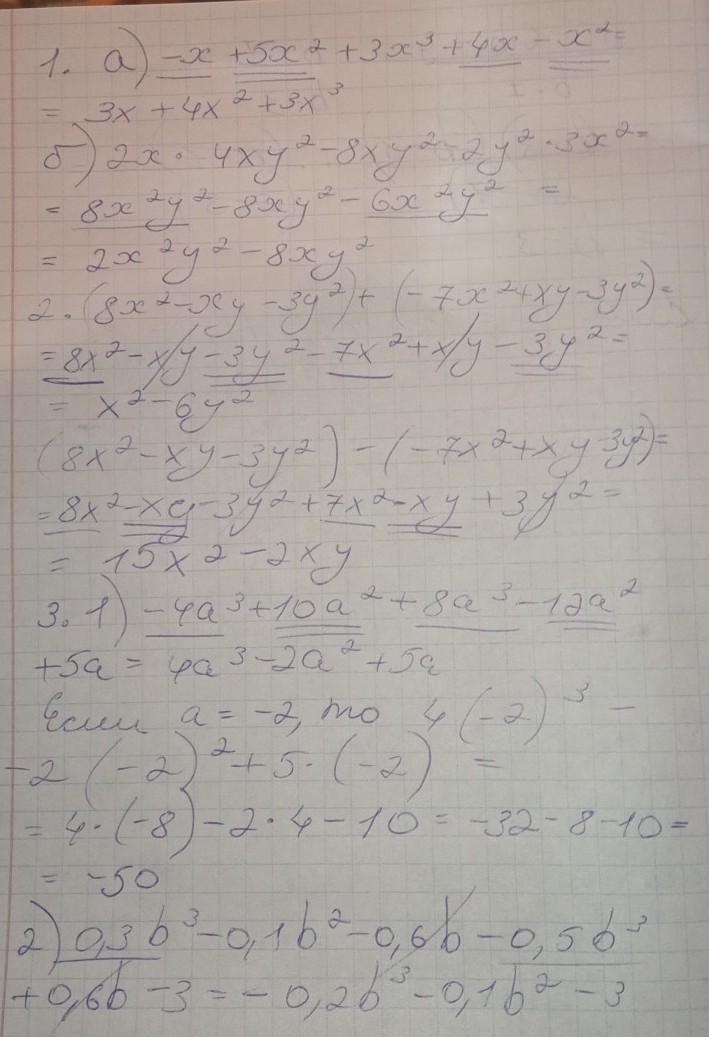 1. а) -x + 5x² + 3x³ + 4x - x² =
= 3x + 4x² + 3x³
б) 2x · 4xy² - 8xy² - 2y² · 3x² =
= 8x²y² - 8xy² - 6x²y² =
= 2x²y² - 8xy²
2. (8x² - xy - 3y²) + (-7x² + xy - 3y²) =
= 8x² - xy - 3y² - 7x² + xy - 3y² =
= x² - 6y²
(8x² - xy - 3y²) - (-7x² + xy 3y²) =
= 8x² - xy - 3y² + 7x² - xy + 3y² =
= 15x² - 2xy
3. 1) -4a³ + 10a² + 8a³ - 12a²
+5a = 4a³ - 2a² + 5a
Если a = -2, то 4(-2)³ -
-2(-2)² + 5·(-2) =
= 4·(-8) - 2·4 - 10 = -32 - 8 - 10 =
= -50
2) 0,3b³ - 0,1b² - 0,6b - 0,5b³
+0,6b - 3 = -0,2b³ - 0,1b² - 3